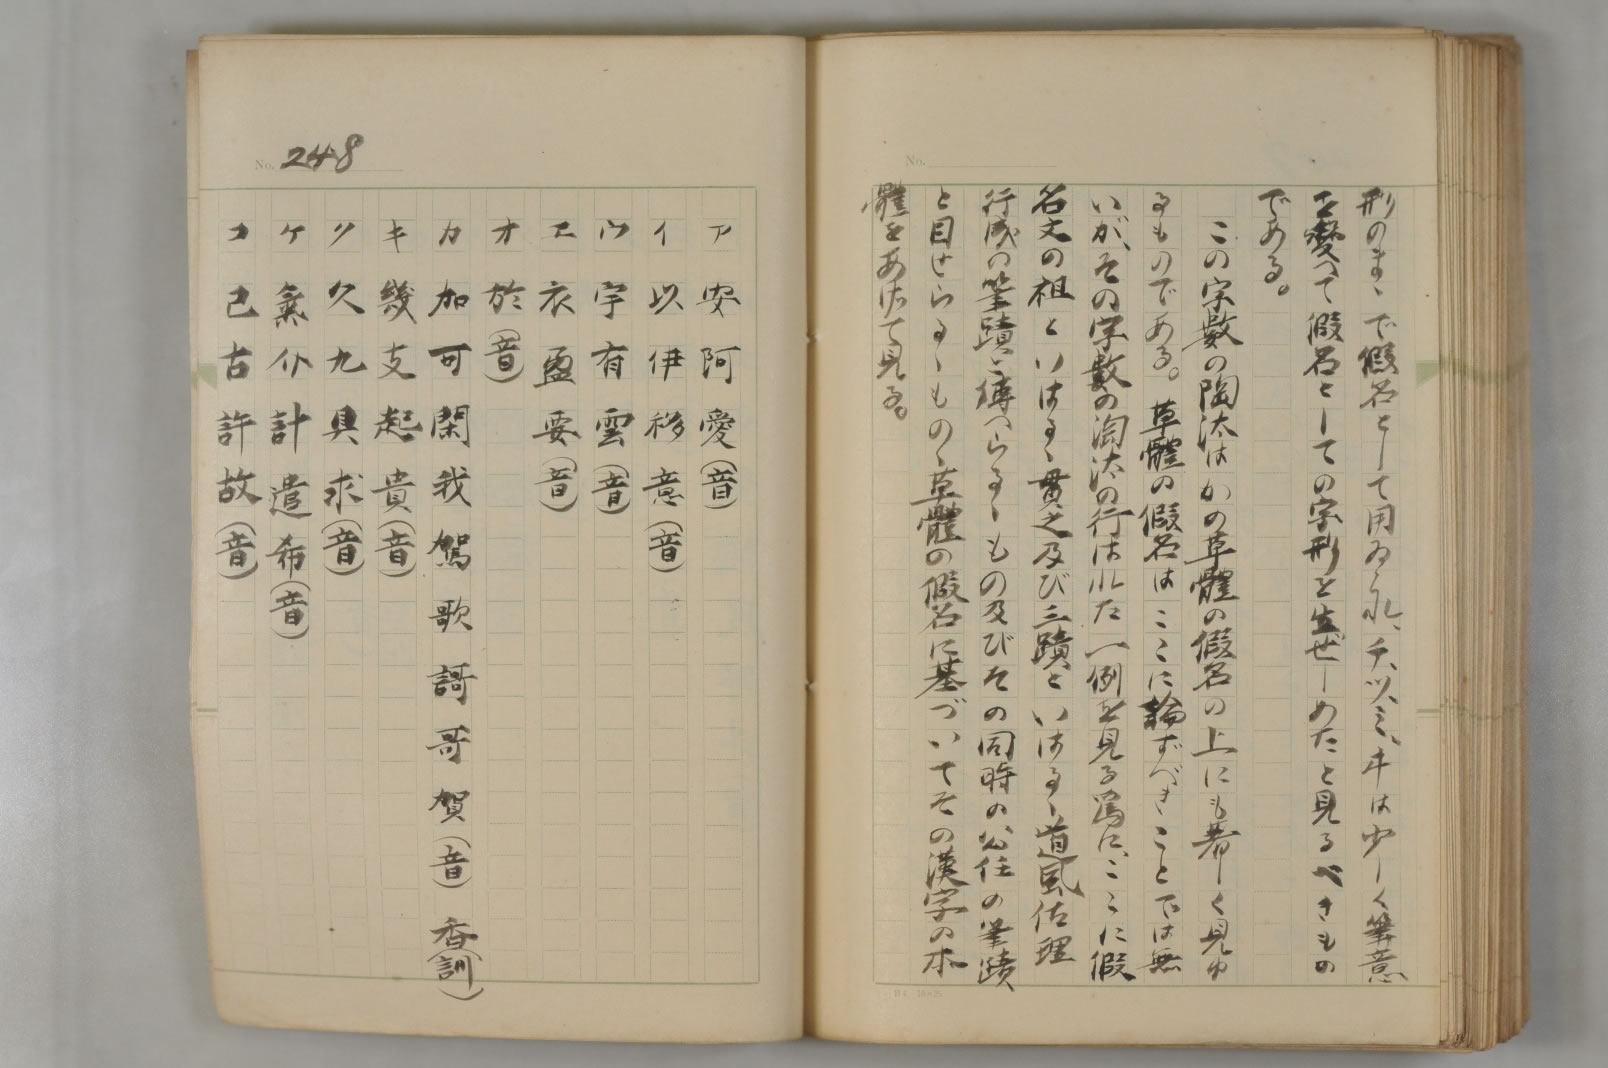 形のまゝで假名として用ゐられ、チ、ツ、ミ、ヰは少しく筆意
を變へて假名としての字形を生ぜしめたと見るべきもの
である。
この字數の陶汰はかの草體の假名の上にも著しく見ゆ
るものである。草體の假名はここに論ずべきことでは無
いが、その字數の淘汰の行はれた一例を見る爲に、ここに假
名文の祖といはるゝ貫之及び三蹟といはるゝ道風佐理
行成の筆蹟と傳へらるゝもの及びその同時の公任の筆蹟
と目せらるゝものゝ草體の假名に基づいてその漢字の本
體をあげて見る。
No.
No. 248
ア 安 阿 愛(音)
イ 以 伊 移 意(音)
ウ 宇 有 雲(音)
エ 衣 盈 要(音)
オ 於(音)
カ 加 可 閑 我 駕 歌 謌 哥 賀(音) 香(訓)
キ 幾 支 起 貴(音)
ク 久 九 具 求(音)
ケ 氣 介 計 遣 希(音)
コ 己 古 許 故(音)